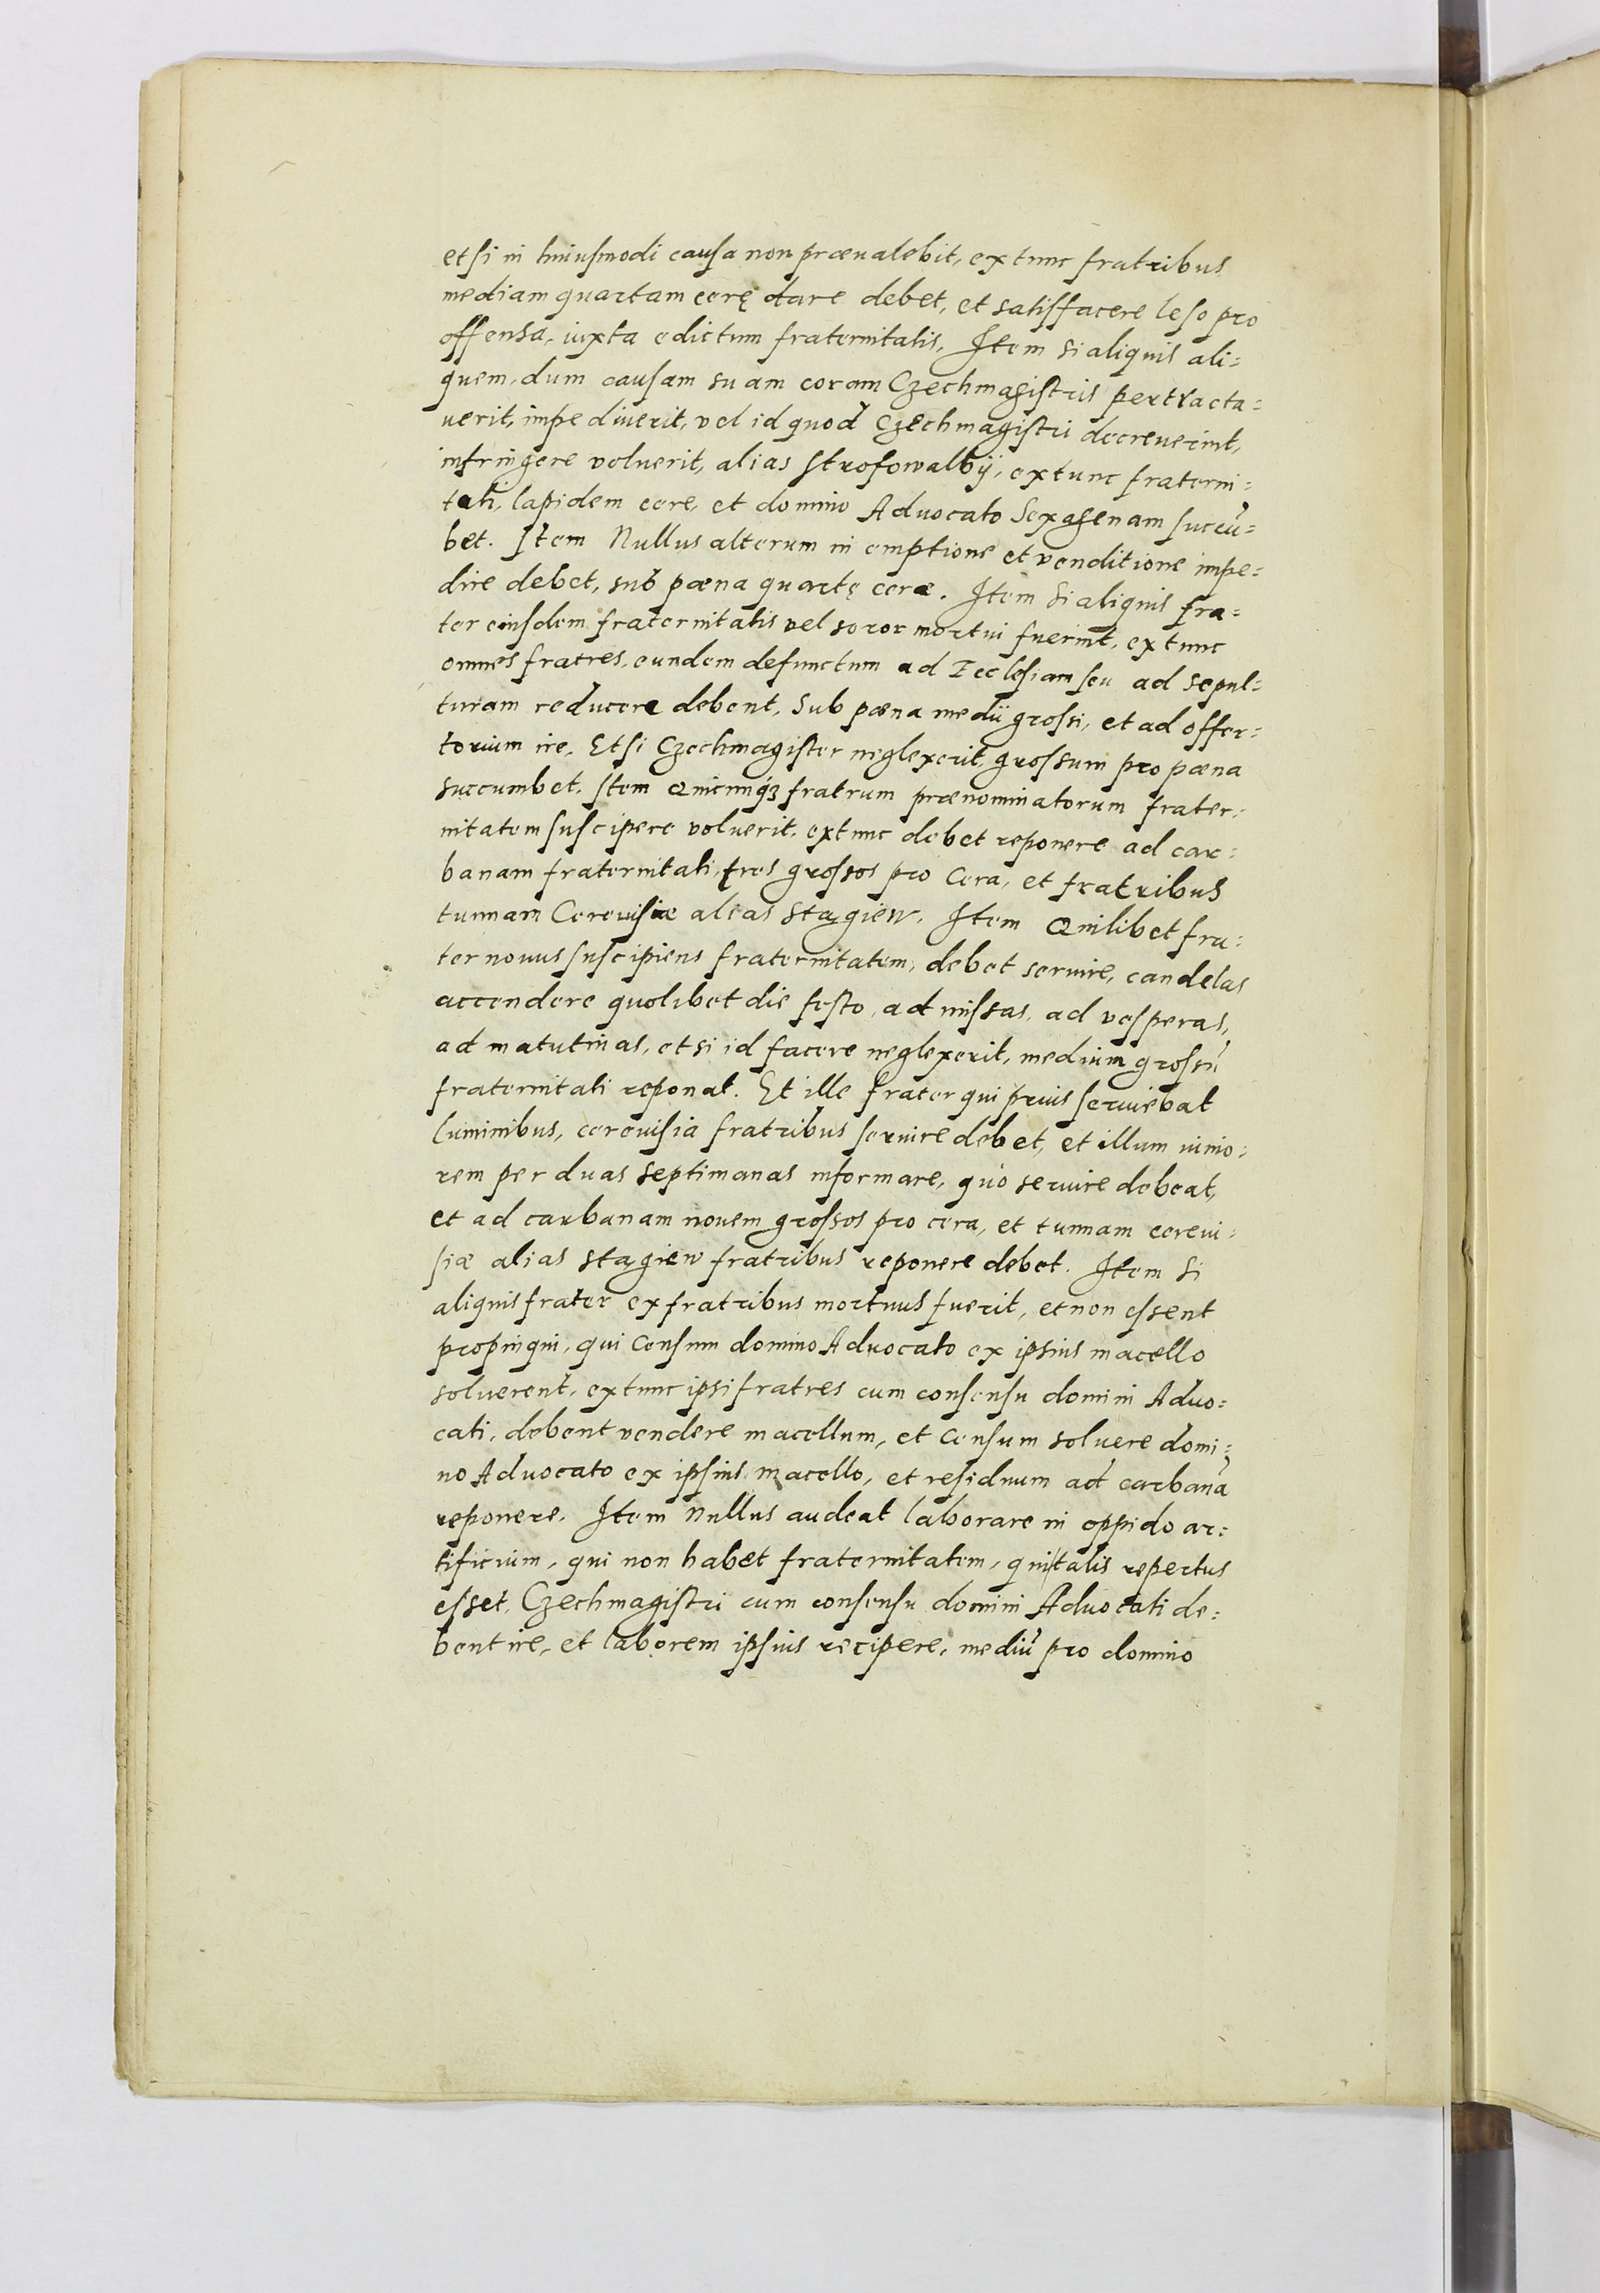 et si in huiusmodi causa non prævalebit, extunc fratribus
mediam quartam cerę dare debet, et satisfacere leso pro
offensa, iuxta edictum fraternitatis. Item si aliquis ali=
quem, dum causam suam coram Czechmagistris pertracta=
uerit, impediuerit, vel id quod Czechmagistri decreuerint,
infringere voluerit, alias strofowalby, extunc fraterni=
tati, lapidem cere, et domino Aduocato Sexagenam succū=
bet. Item Nullus alterum in emptione et venditione impe=
dire debet, sub pœna quartę ceræ. Item si aliquis fra=
ter eiusdem fraternitatis vel soror mortui fuerint, extunc
omnes fratres, eundem defunctum ad Ecclesiam seu ad sepul=
turam reducere debent, sub pœna medii grossi, et ad offer=
torium ire. Et si Czechmagister neglexerit, grossum pro pœna
succumbet. Item Quicunqꝫ fratrum prænominatorum frater=
nitatem suscipere voluerit, extunc debet reponere ad car=
banam fraternitati, tres grossos pro Cera, et fratribus
tunnam Cerevisiæ alias stągiew. Item Quilibet fra=
ter nouus suscipiens fraternitatem, debet seruire, candelas
accendere quolibet die festo, ad missas, ad vesperas,
ad matutinas, et si id facere neglexerit, medium grossū
fraternitati reponat. Et ille frater qui prius seruiebat
luminibus, cereuisia fratribus seruire debet, et illum iunio=
rem per duas septimanas informare, quo seruire debeat,
et ad carbanam nouem grossos pro cera, et tunnam cereui=
siæ alias stągiew fratribus reponere debet. Item si
aliquis frater ex fratribus mortuus fuerit, et non essent
propinqui, qui Censum domino Aduocato ex ipsius macello
soluerent, extunc ipsi fratres cum consensu domini Aduo=
cati, debent vendere macellum, et Censum soluere domi=
no Aduocato ex ipsius macello, et residuum ad carbanā
reponere. Item Nullus audeat laborare in oppido ar=
tificium, qui non habet fraternitatem, qui talis repertus
esset, Czechmagistri cum consensu domini Aduocati de=
bent ire, et laborem ipsius recipere, mediū pro domino